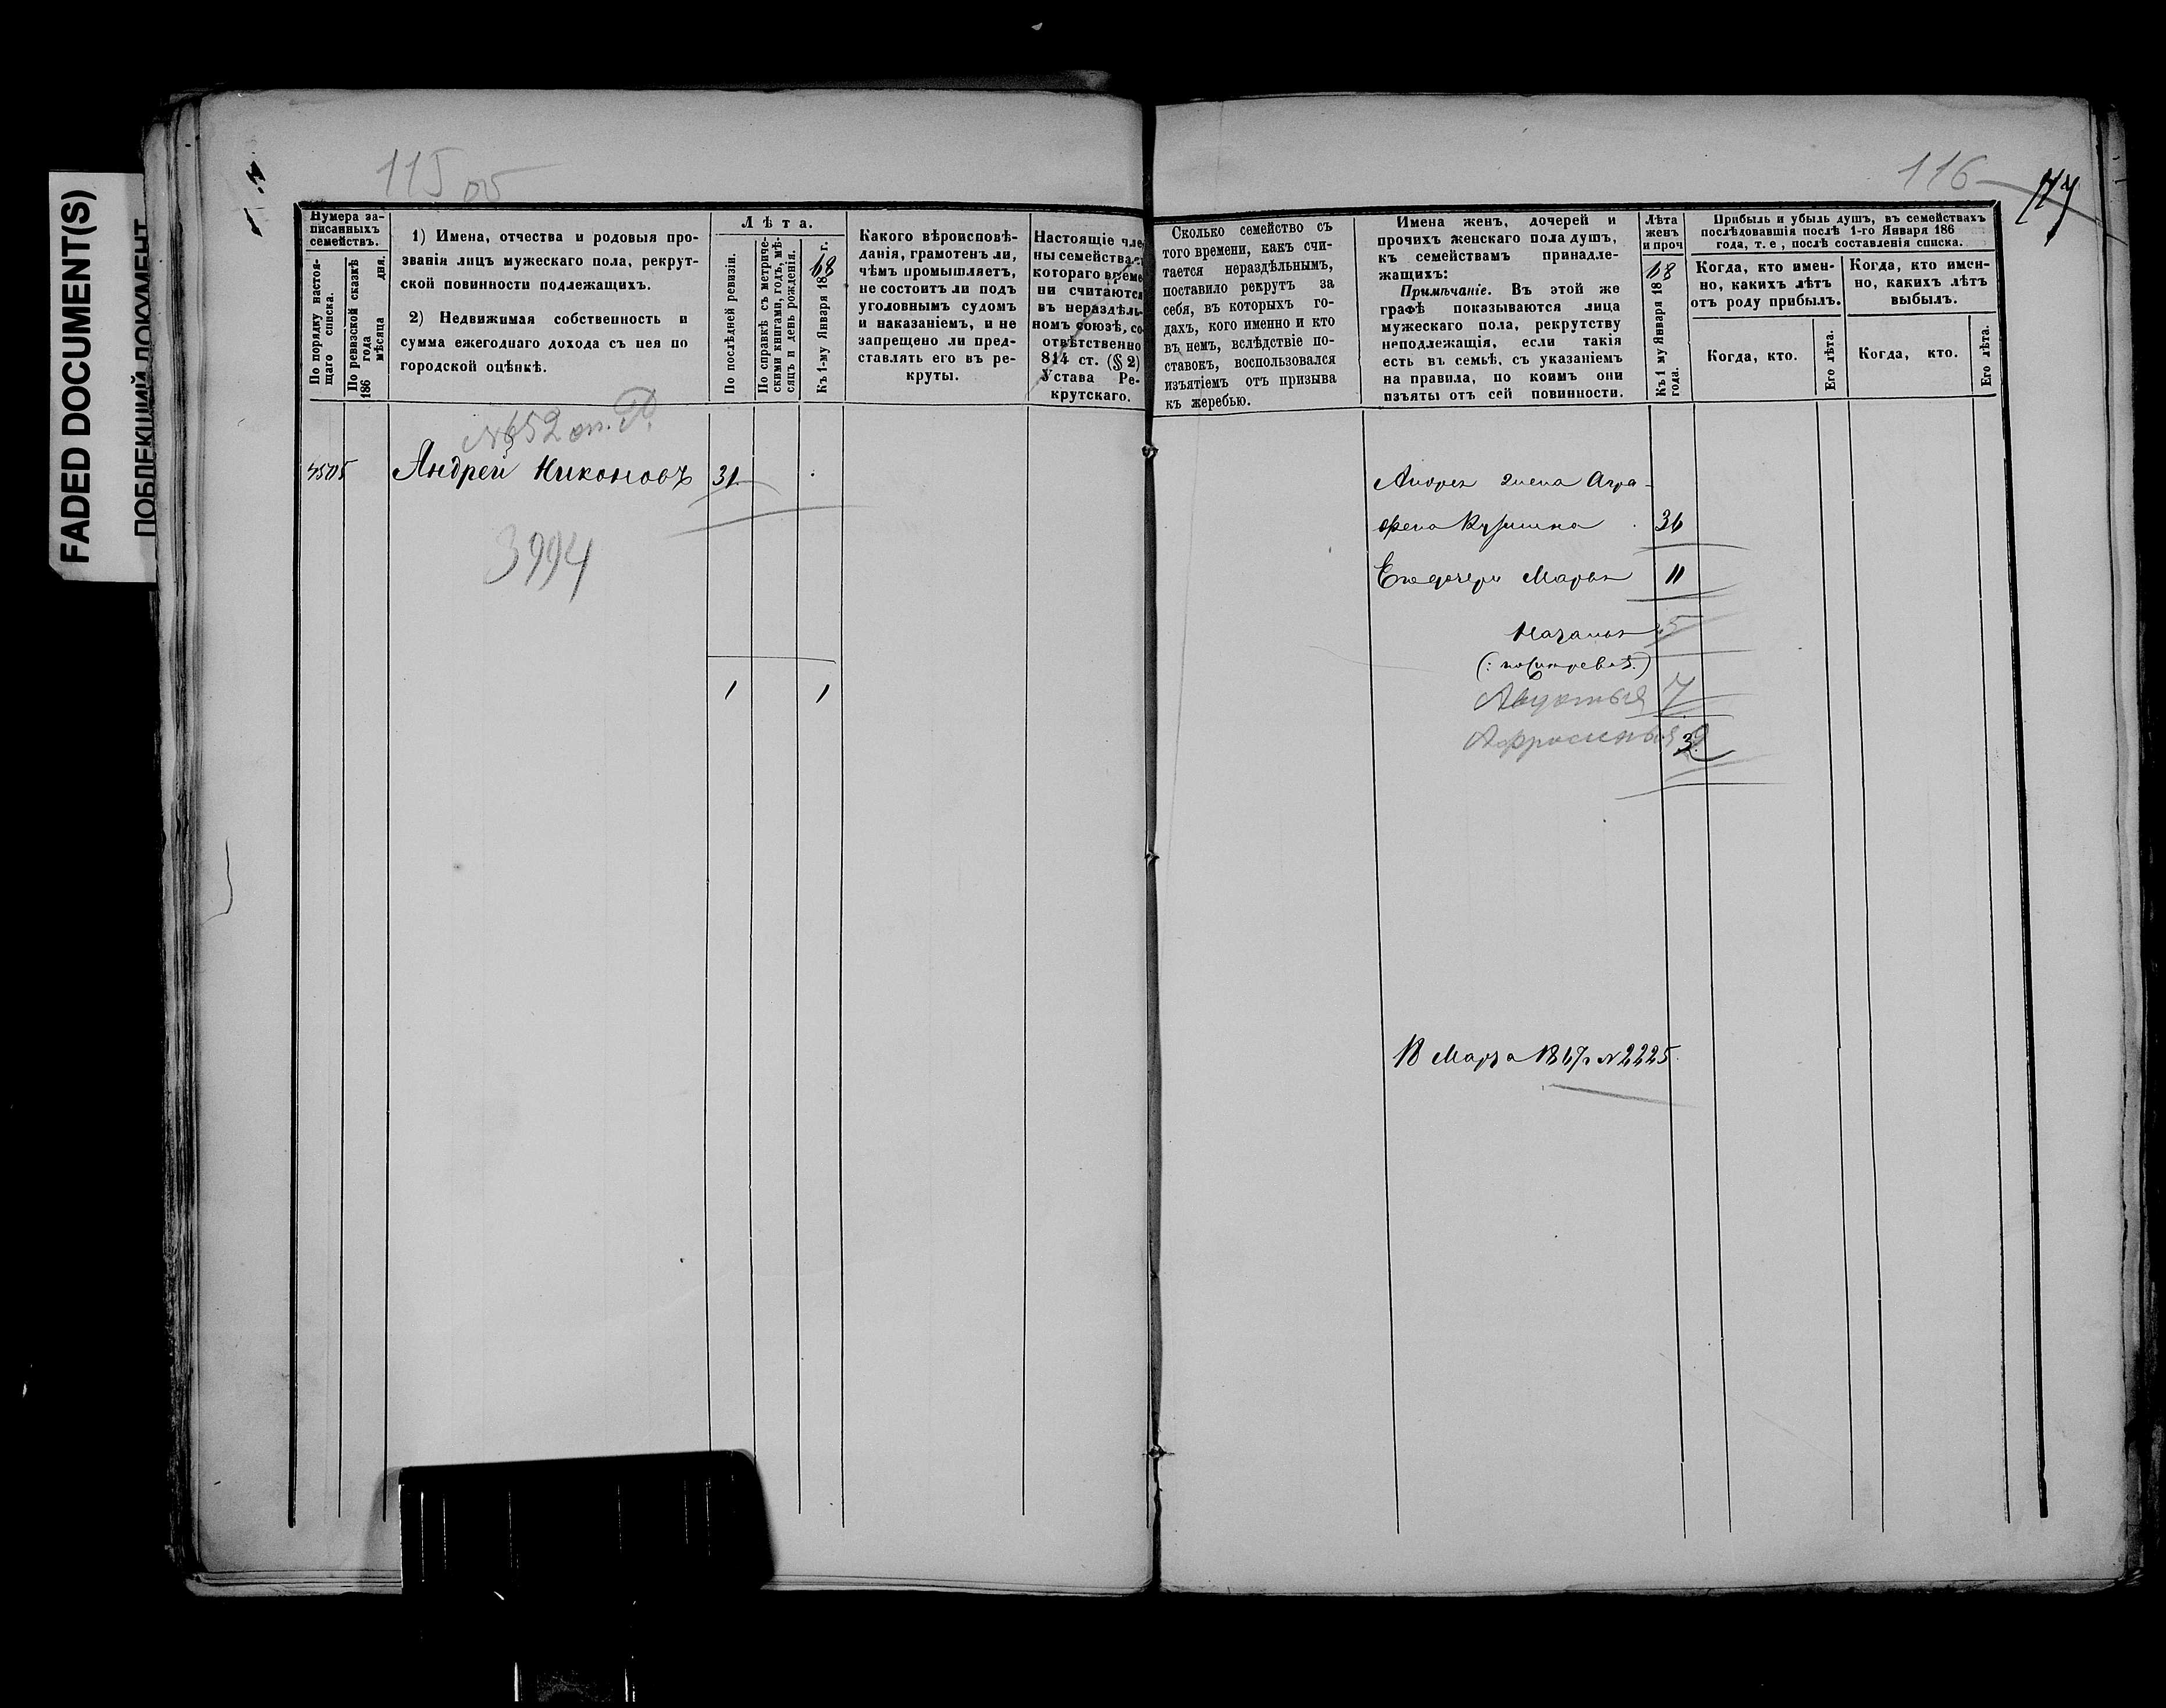 FADED DOCUMENT(S)
ПОБЛЕКШИЙ ДОКУМЕНТ
115
116
Нумера за-
писанныхъ
семействъ.
По порядку настоя-
щаго списка.
По ревизской сказкѣ
186 года мѣсяца дня.
1) Имена, отчества и родовыя про-
званія лицъ мужескаго пола, рекрут-
ской повинности подлежащихъ.
2) Недвижимая собственность и
сумма ежегоднаго дохода съ нея по
городской оцѣнкѣ.
Лѣта.
По послѣдней ревизіи.
По справкѣ съ метриче-
скими книгами, годъ, мѣ-
сяцъ и день рожденія.
Къ 1-му Января 1868 г.
Какого вѣроисповѣ-
данія, грамотенъ ли,
чѣмъ промышляетъ,
не состоитъ ли подъ
уголовнымъ судомъ
и наказаніемъ, и не
запрещено ли пред-
ставлять его въ ре-
круты.
Настоящіе чле-
ны семейства съ
котораго време-
ни считаются
въ нераздѣль-
номъ союзѣ, со-
отвѣтственно
814 ст. (§ 2)
Устава Ре-
крутскаго.
Сколько семейство съ
того времени, какъ счи-
тается нераздѣльнымъ,
поставило рекрутъ за
себя, въ которыхъ го-
дахъ, кого именно и кто
въ немъ, вслѣдствіе по-
ставокъ, воспользовался
изъятіемъ отъ призыва
къ жеребью.
Имена женъ, дочерей и
прочихъ женскаго пола душъ,
къ семействамъ принадле-
жащихъ:
Примѣчаніе. Въ этой же
графѣ показываются лица
мужескаго пола, рекрутству
неподлежащія, если такія
есть въ семьѣ, съ указаніемъ
на правила, по коимъ они
изъяты отъ сей повинности.
Лѣта
женъ
и проч
Къ 1 му Января 1868
года.
Прибыль и убыль душъ, въ семействахъ
послѣдовавшія послѣ 1-го Января 186
года, т. е, послѣ составленія списка.
Когда, кто имен-
но, какихъ лѣтъ
отъ роду прибылъ.
Когда, кто имен-
но, какихъ лѣтъ
выбылъ.
Когда, кто.
Его лѣта.
Когда, кто.
Его лѣта.
№ 652
Андрей Никоновъ 31
3994
1 1
Андрея жена Агра-
фена Кузмина 36
Его дочери Марья 11
Наталья 5
Авдотья 7
Афросинья 3
18 Марта 1867 г № 2225.